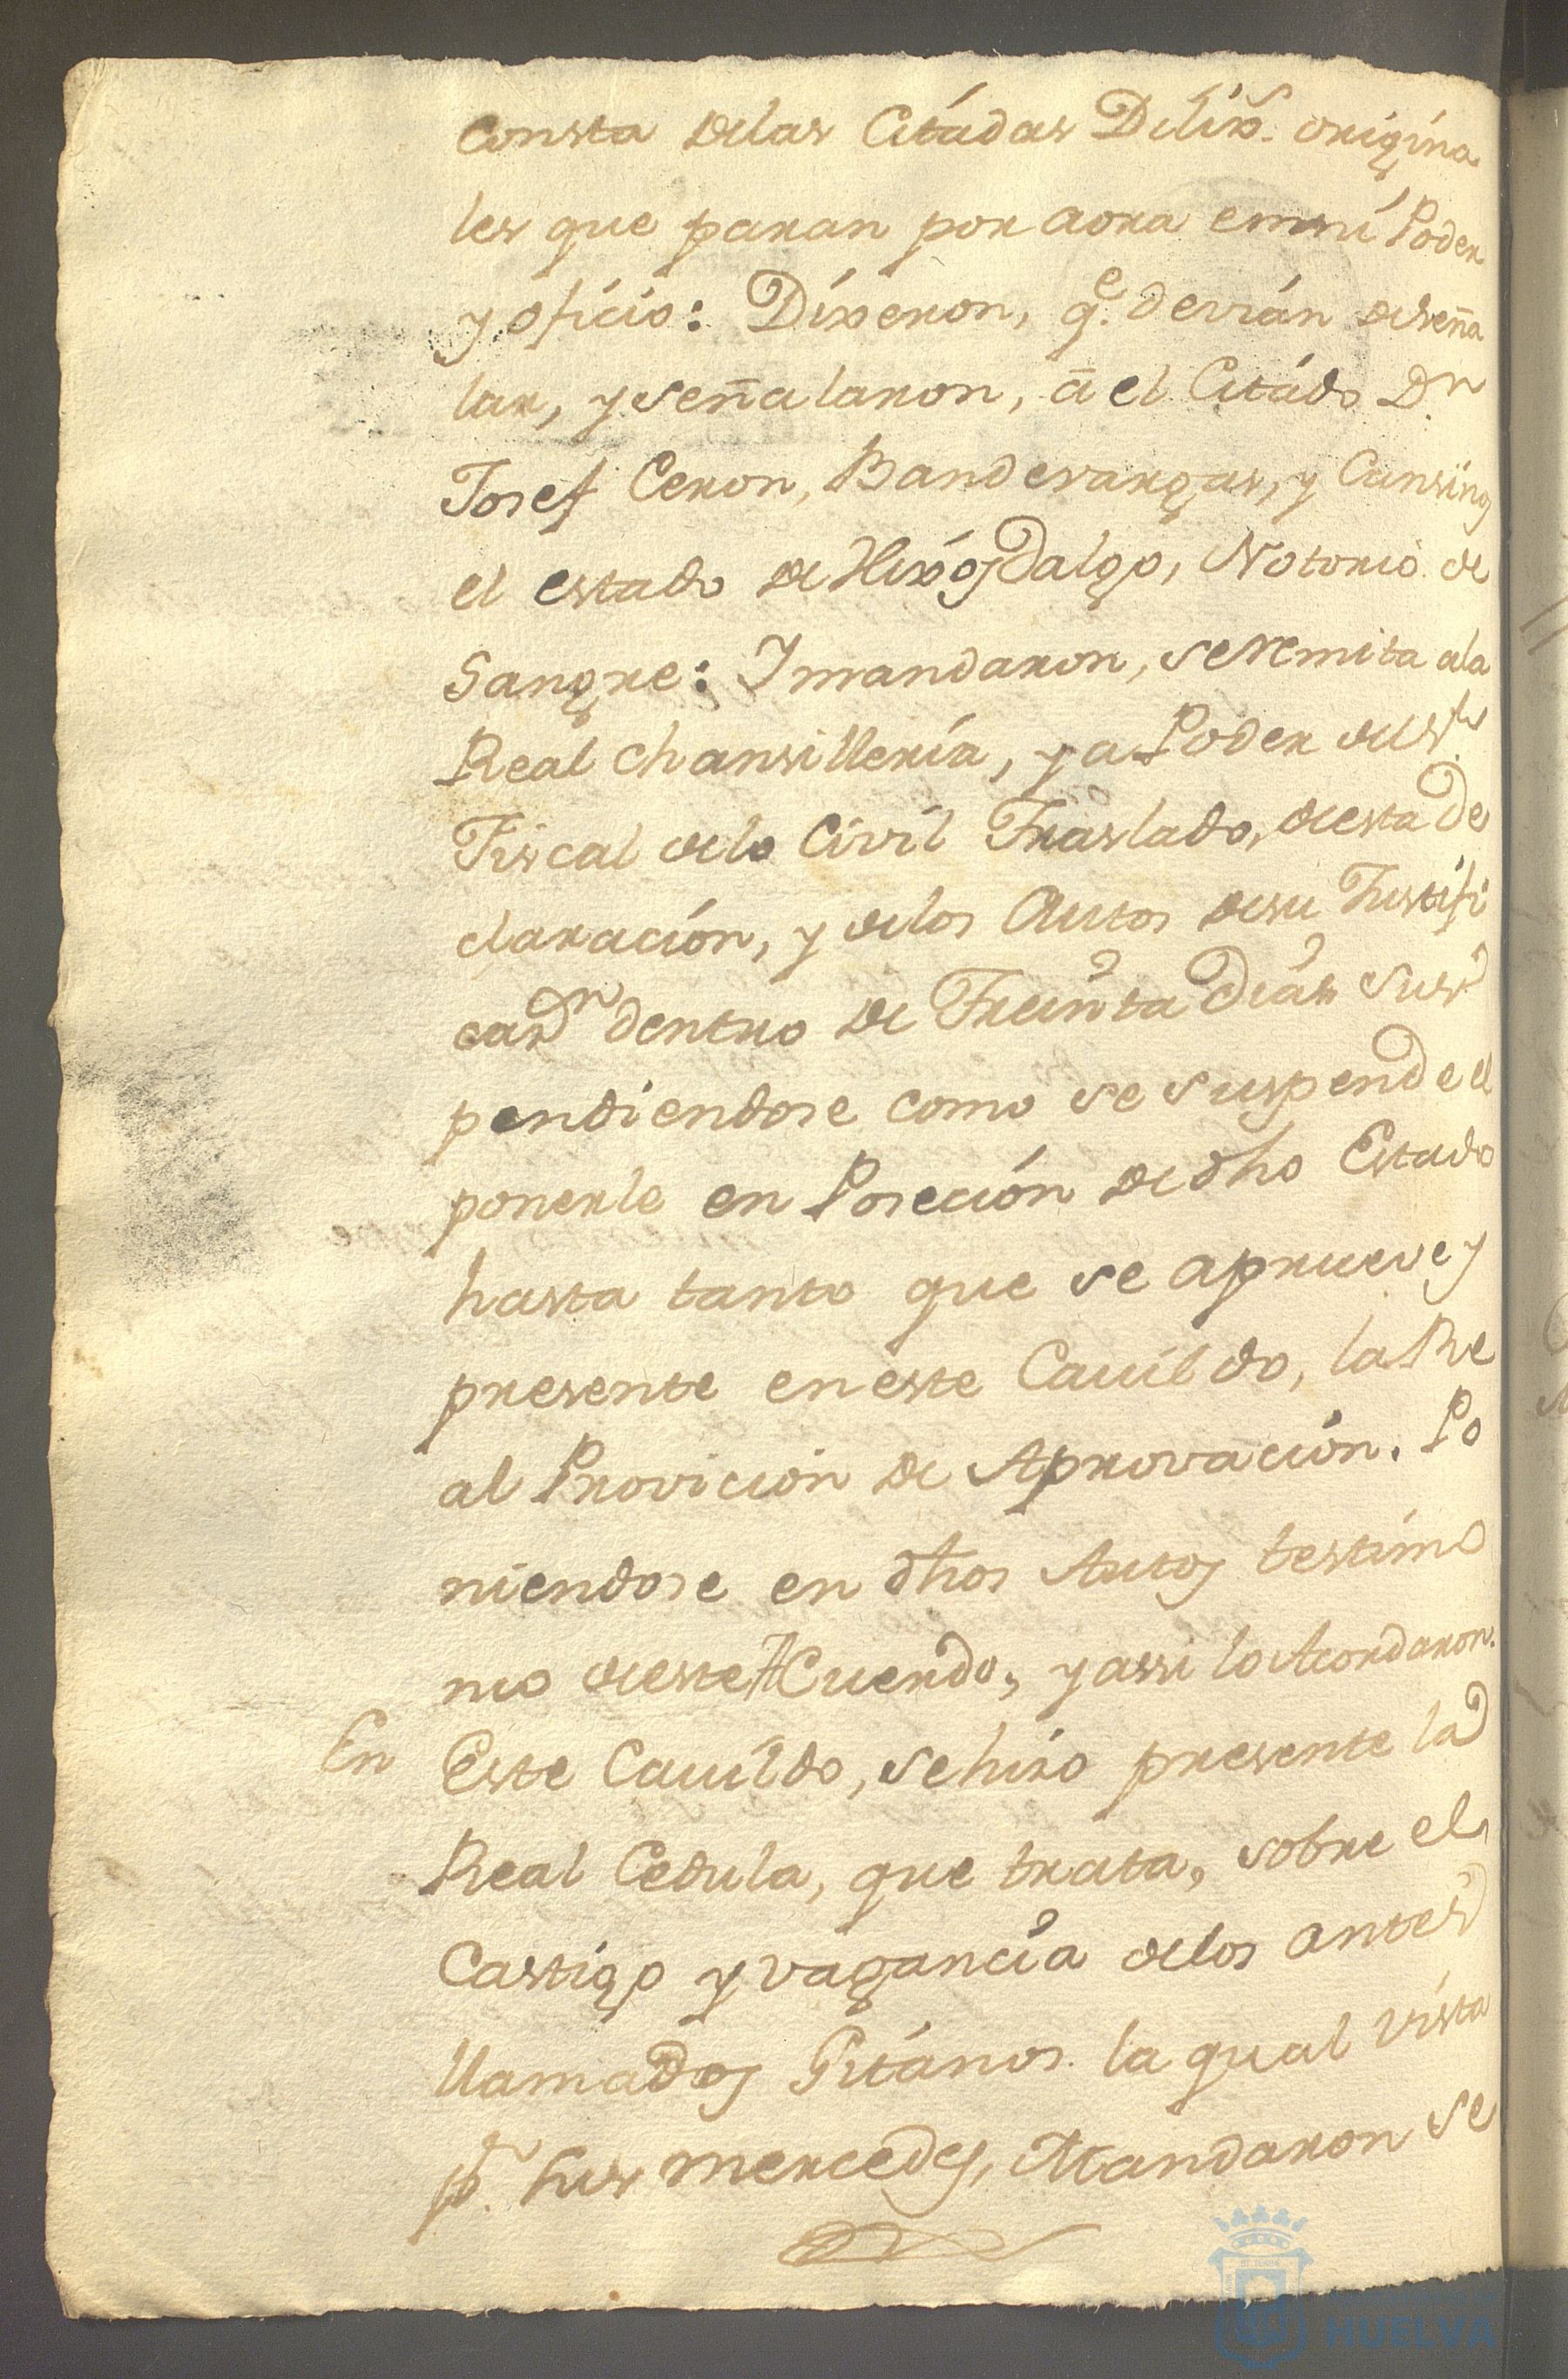 Consta de las Citádas Dilixs. origina
les que paran por aora en mí Poder
y oficio: Dixeron, qe. devián de seña
lar, y señalaron, â el Citádo Dn.
Josef Ceron, Bandevargas, y Cansino
el estado de Hixosdalgo, Notorio de
Sangre: Y mandaron, se remita a la
Real Chansillería, y a Poder del Sr.
Fiscal de lo Civil Traslado, de esta de
claración, y de los Autos de su Justifi
cazn dentro de Treinta Dias Sus
pendiendose como se suspende el
ponerle en Poseción de dho Estado
hasta tanto que se aprueve y
presente en este Cavildo, la Re
al Provicion de Aprovación. Po
niendose en dhos Autos testimo
nio de este Acuerdo, y assi lo Acordaron.
En Este Cavildo, se hizo presente la
Real Cedula, que trata, sobre el
Castigo y vagancia de los antes
llamados Gitános. la qual vista
pr. sus mercedes, Mandaron se
HUELVA